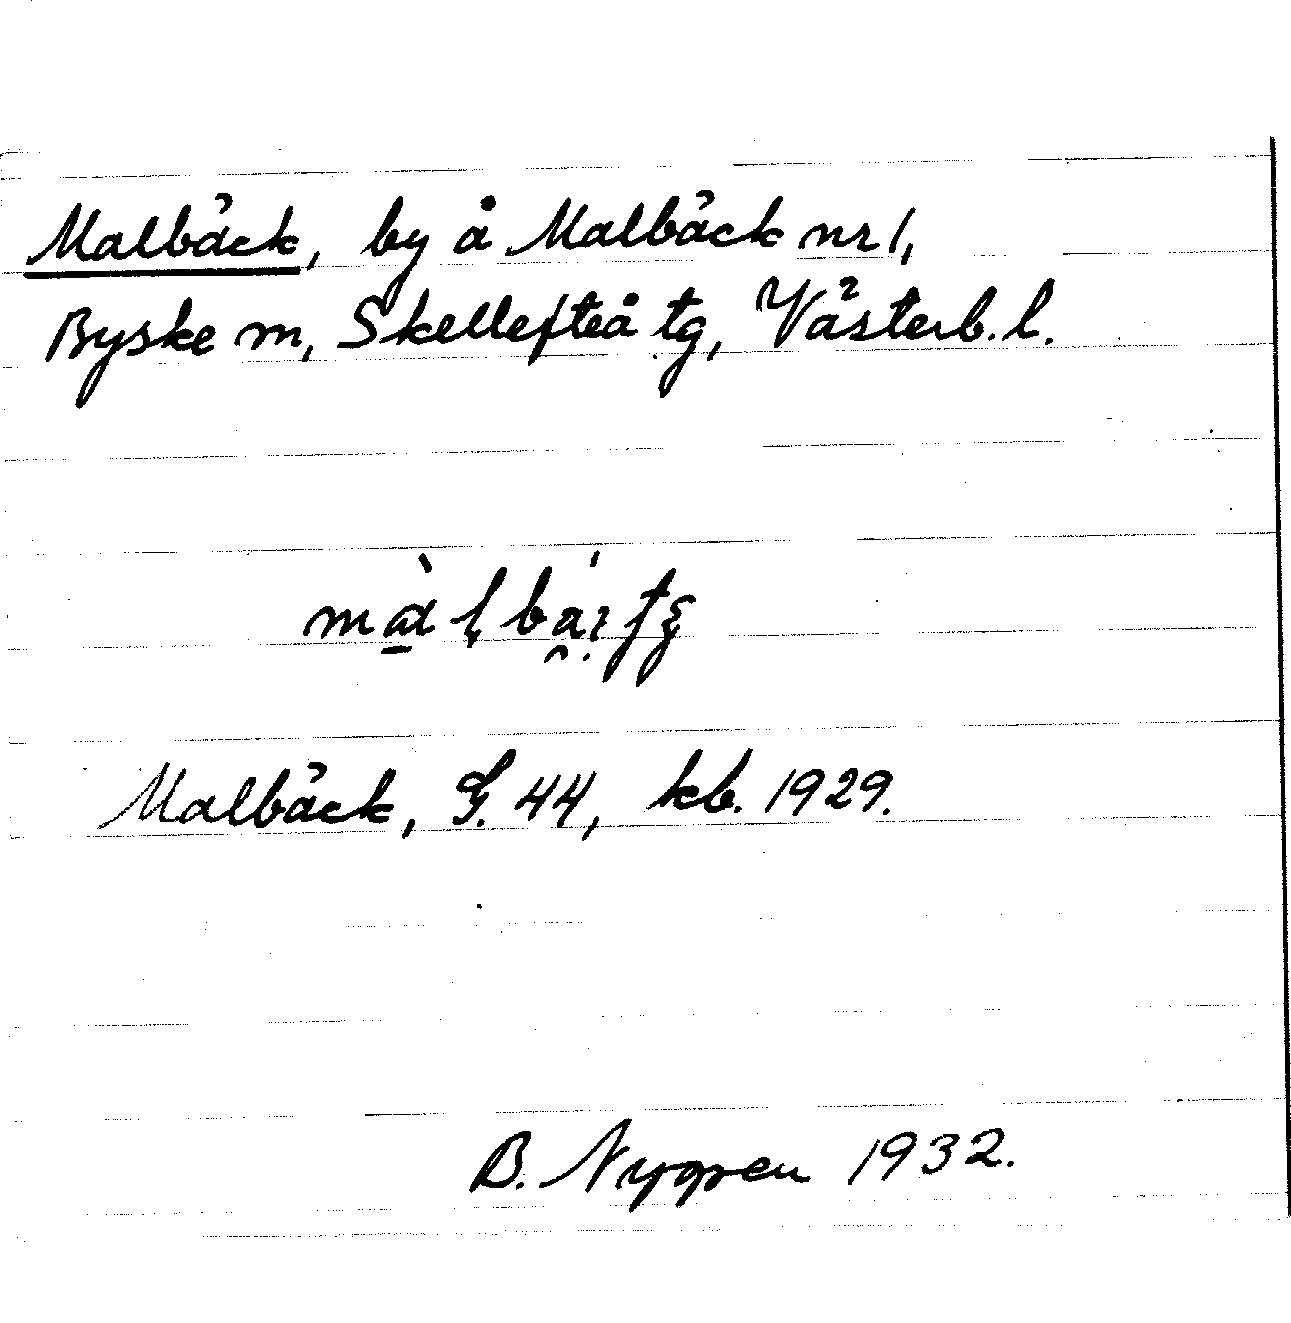 Malbäck, by å Malbäck nr 1,
Byske sn, Skellefteå tg, Västerb. l.
Malbäck, G. 44, kb. 1929.
B. Nygren 1932.